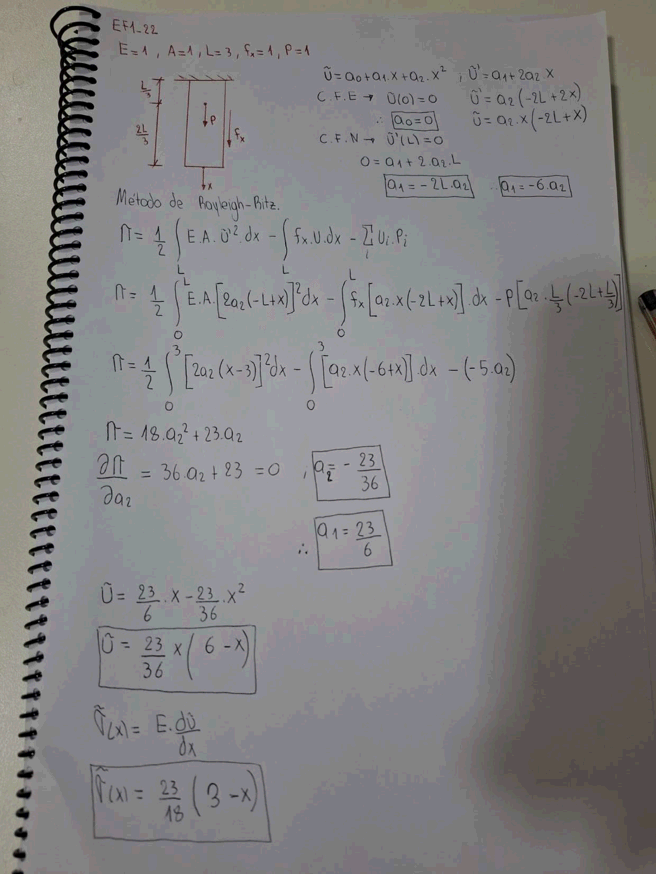 EF1-22
E=1 , A=1, L=3 , fx=1, P=1
L/3
2L/3
P
fx
x
ũ=a0+a1.x+a2.x² , ũ'=a1+2a2x
C.F.E → ũ(0)=0
ũ'=a2(-2L+2x)
∴ a0=0
ũ=a2.x(-2L+x)
C.F.N → ũ'(L)=0
0=a1+2.a2.L
a1=-2L.a2 ∴ a1=-6.a2
Método de Rayleigh-Ritz.
π = 1/2 ∫_L E.A.ũ'².dx - ∫_L fx.u.dx - Σ_i Ui.Pi
π = 1/2 ∫_0^L E.A.[2a2(-L+x)]²dx - ∫_0^L fx[a2.x(-2L+x)].dx - P[a2.L/3(-2L+L/3)]
π = 1/2 ∫_0^3 [2a2(x-3)]²dx - ∫_0^3 [a2.x(-6+x)].dx - (-5.a2)
π = 18.a2²+23.a2
∂π/∂a2 = 36.a2+23 =0 , a2=-23/36
∴ a1=23/6
ũ= 23/6.x-23/36.x²
ũ= 23/36 x(6-x)
σ̃(x)= E.dũ/dx
σ̃(x)= 23/18 (3-x)